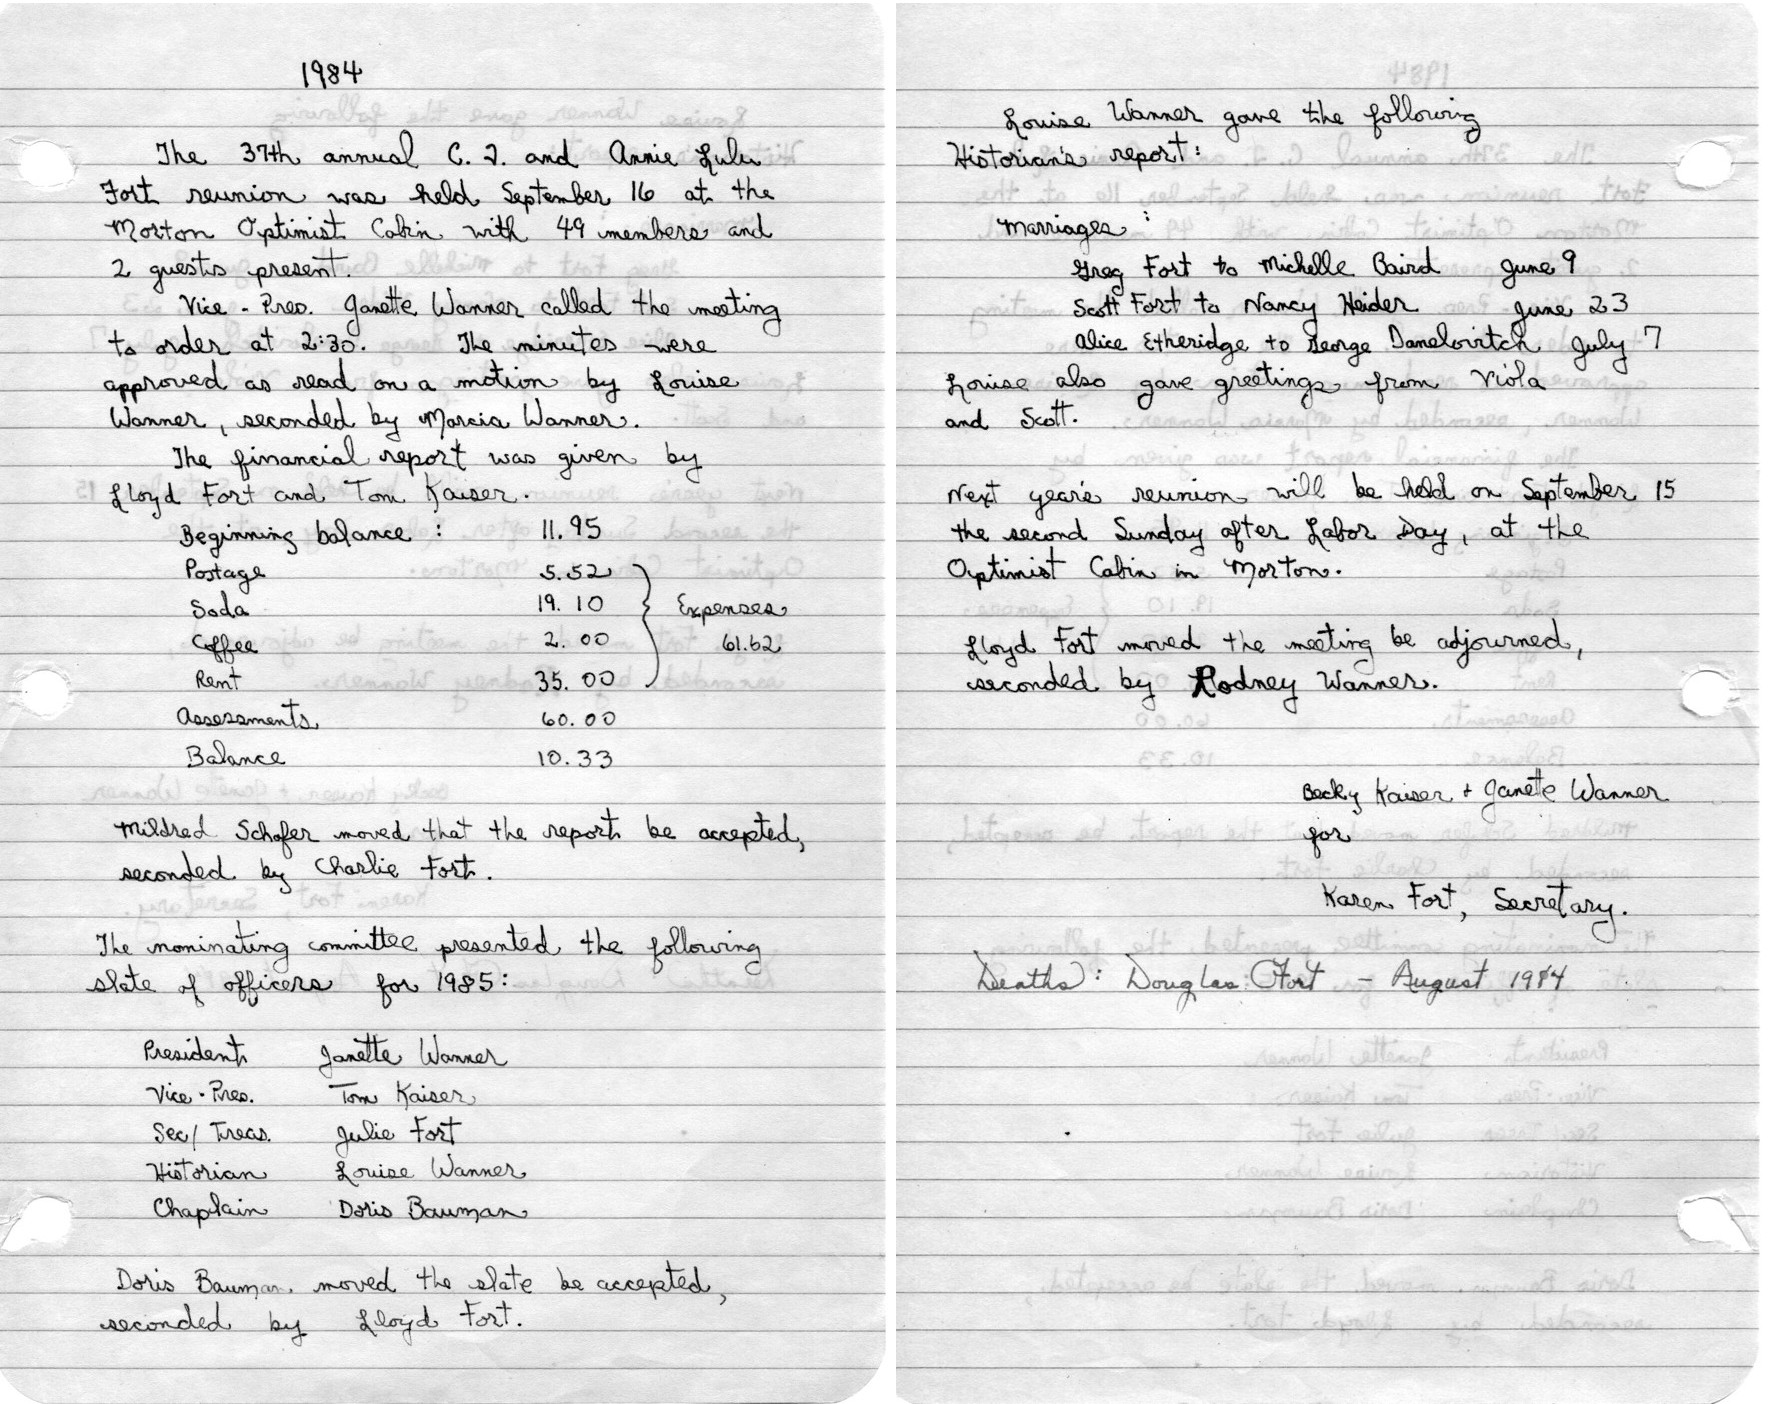 1984
The 37th annual C. J. and Annie Lulu
Fort reunion was held September 16 at the
Morton Optimist Cabin with 49 members and
2 guests present.
Vice-Pres. Janette Wanner called the meeting
to order at 2:30. The minutes were
approved as read on a motion by Louise
Wanner, seconded by Marcia Wanner.
The financial report was given by
Lloyd Fort and Tom Kaiser.
Beginning balance : 11.95
Postage 5.52
Soda 19.10 Expenses
Coffee 2.00 61.62
Rent 35.00
Assessments 60.00
Balance 10.33
Mildred Schofer moved that the report be accepted,
seconded by Charlie Fort.
The nominating committee presented the following
slate of officers for 1985:
President Janette Wanner
Vice-Pres. Tom Kaiser
Sec/Treas. Julie Fort
Historian Louise Wanner
Chaplain Doris Bauman
Doris Bauman moved the slate be accepted,
seconded by Lloyd Fort.
Louise Wanner gave the following
Historian's report:
Marriages :
Greg Fort to Michelle Baird June 9
Scott Fort to Nancy Heider June 23
Alice Etheridge to George Danelovitch July 7
Louise also gave greetings from Viola
and Scott.
Next year's reunion will be held on September 15
the second Sunday after Labor Day, at the
Optimist Cabin in Morton.
Lloyd Fort moved the meeting be adjourned,
seconded by Rodney Wanner.
Becky Kaiser + Janette Wanner
for
Karen Fort, Secretary.
Deaths: Douglas Fort - August 1984